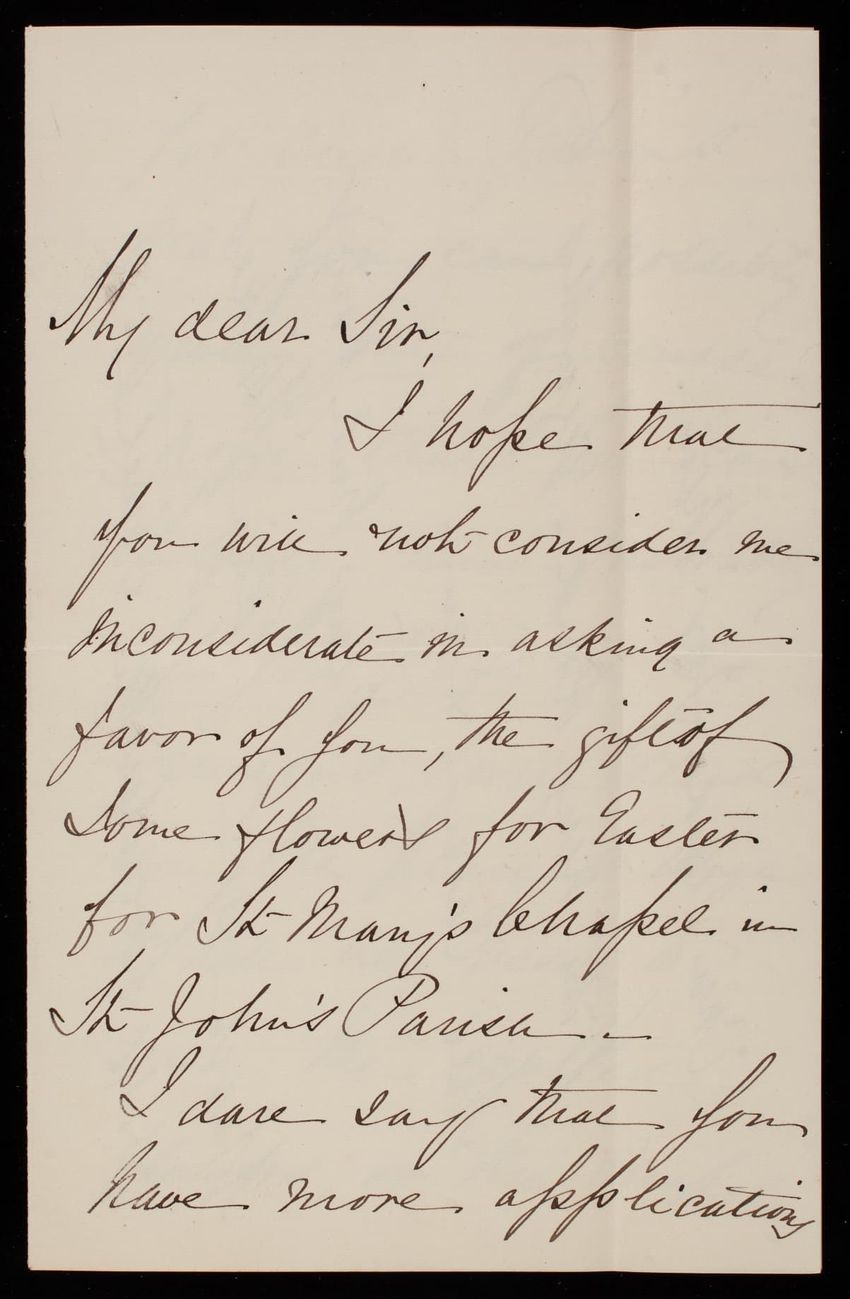 My dear Sir,
I hope that
you will not consider me
inconsiderate in asking a
favor of you, the gift of
some flowers for Easter
for St Mary's Chapel in
St John's Parish. -
I dare say that you
have more applications